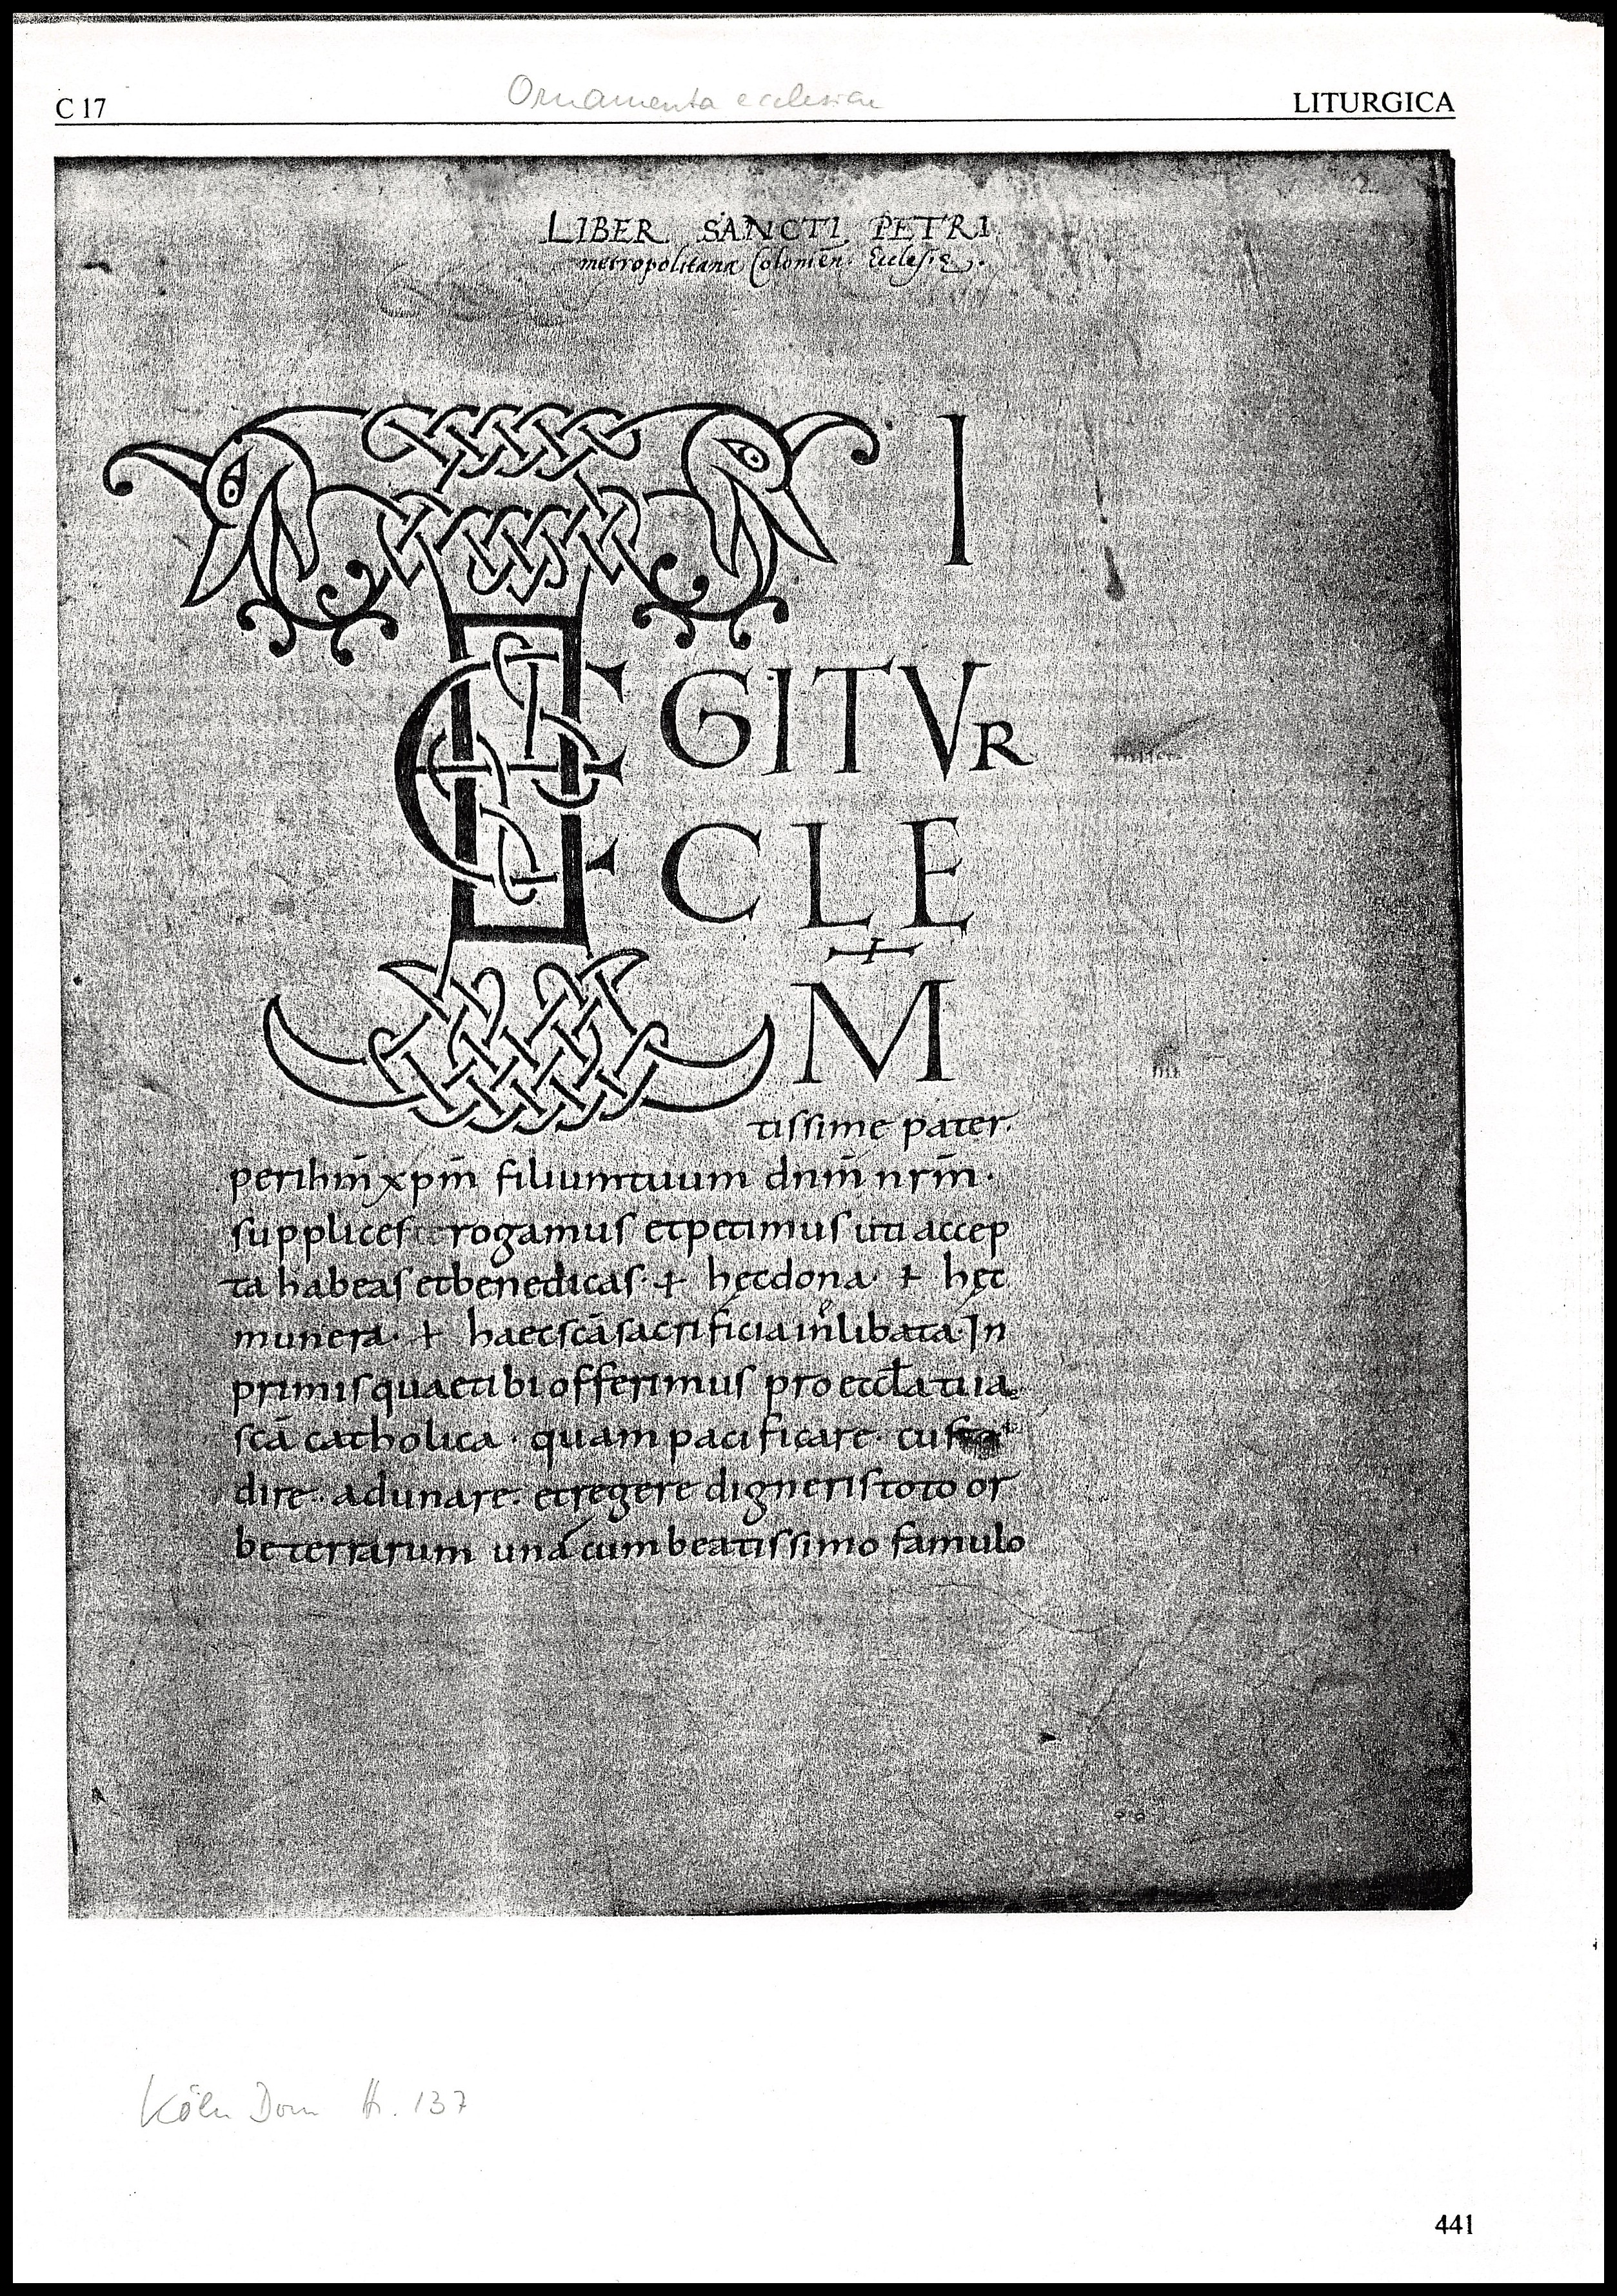 C 17
Ornamenta ecclesiae
LITURGICA
LIBER SANCTI PETRI
metropolitanæ Colonien. Ecclesiæ.
TE I
GITVR
CLE
M
tissime pater.
perihm̄ xpm̄ filiumtuum dnm̄ nrm̄.
supplices rogamus etpetimus uti accep
ta habeas etbenedicas + hęcdona + hęc
munera + haecscāsacrificia inlibata. In
primisquaetibi offerimus pro eccła tua
scā catholica · quam pacificare · custo
dire · adunare · etregere dignerıstoto or
beterrarum una cum beatissimo famulo
Köln Dom Hs. 137
441